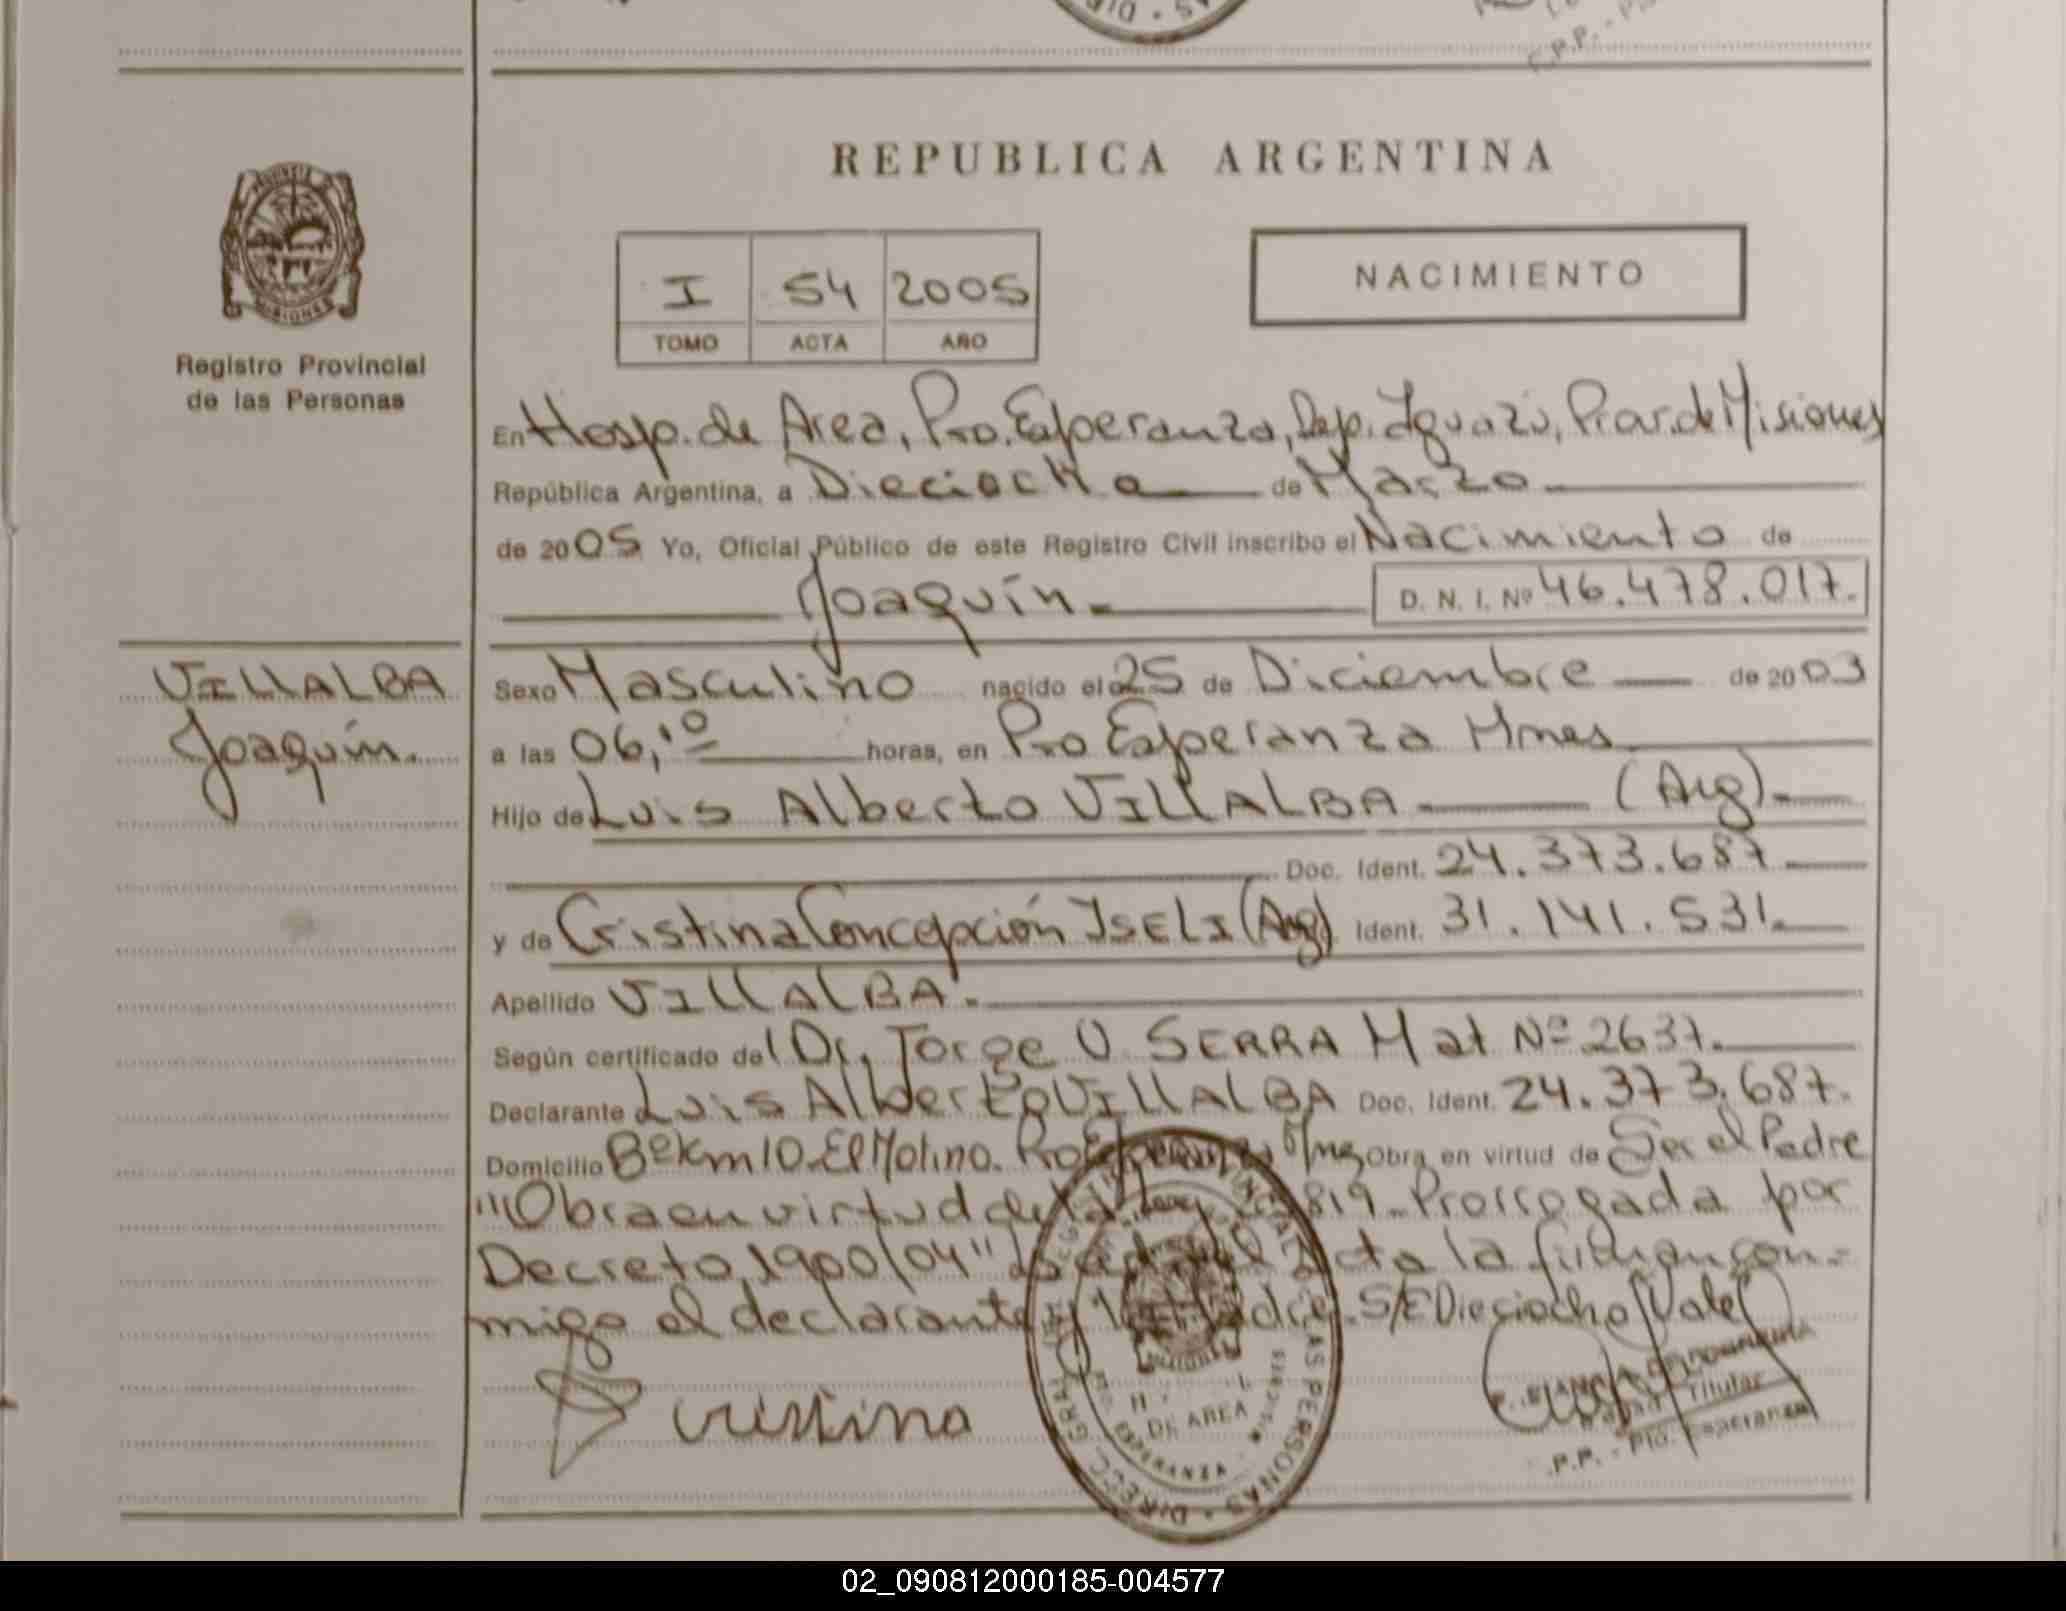 REPUBLICA ARGENTINA
I 54 2005
TOMO ACTA AÑO
NACIMIENTO
Registro Provincial
de las Personas
En Hosp. de Area, Pto. Esperanza, Dep. Iguazú, Prov. de Misiones
República Argentina, a Dieciocho de Marzo
de 2005 Yo, Oficial Público de este Registro Civil inscribo el Nacimiento de
Joaquín.
D. N. I. Nº 46.478.017.
VILLALBA
Joaquín.
Sexo Masculino nacido el 25 de Diciembre de 2003
a las 06,10 horas, en Pto Esperanza Mnes.
Hijo de Luis Alberto VILLALBA (Arg).
Doc. Ident. 24.373.687
y de Cristina Concepción ISELI (Arg) Ident. 31.141.531.
Apellido VILLALBA.
Según certificado del Dr. Jorge U. SERRA Mat Nº 2637.
Declarante Luis Alberto VILLALBA Doc. Ident. 24.373.687.
Domicilio Bº Km 10. El Molino. Pto Esperanza Obra en virtud de Ser el Padre
"Obra en virtud de la Ley 819. Prorrogada por
Decreto 1900/04" Acta la firman con-
migo el declarante y la Madre. S/E Dieciocho Vale
Cristina
DE AREA
Titular
P.P. - Pto. Esperanza
02_090812000185-004577